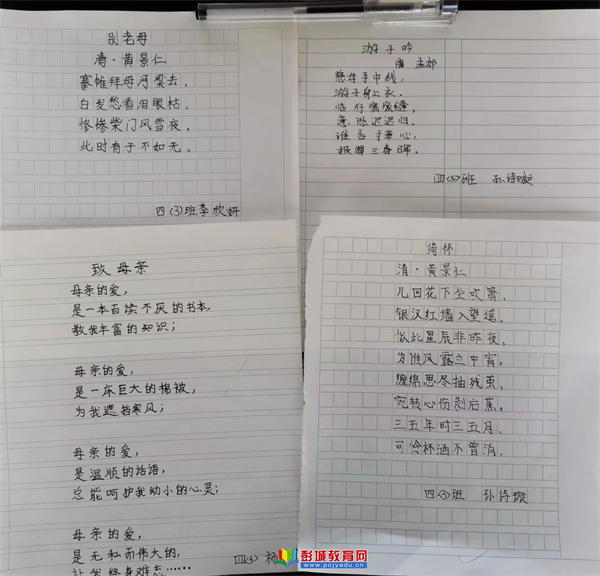 别老母
清·黄景仁
搴帷拜母河梁去,
白发愁看泪眼枯。
惨惨柴门风雪夜,
此时有子不如无。
四(3)班李欣妍
游子吟
唐 孟郊
慈母手中线,
游子身上衣。
临行密密缝,
意恐迟迟归。
谁言寸草心,
报得三春晖。
四(3)班 孙诗璇
致母亲
母亲的爱,
是一本百读不厌的书本,
教我丰富的知识;
母亲的爱,
是一床巨大的棉被,
为我遮挡寒风;
母亲的爱,
是温顺的话语,
总能呵护我幼小的心灵;
母亲的爱,
是无私而伟大的,
让我终身难忘……
四(3)杨
绮怀
清·黄景仁
几回花下坐吹箫,
银汉红墙入望遥。
似此星辰非昨夜,
为谁风露立中宵。
缠绵思尽抽残茧,
宛转心伤剥后蕉。
三五年时三五月,
可怜杯酒不曾消。
四(3)班 孙诗璇
彭城教育网
www.pcjyedu.cn